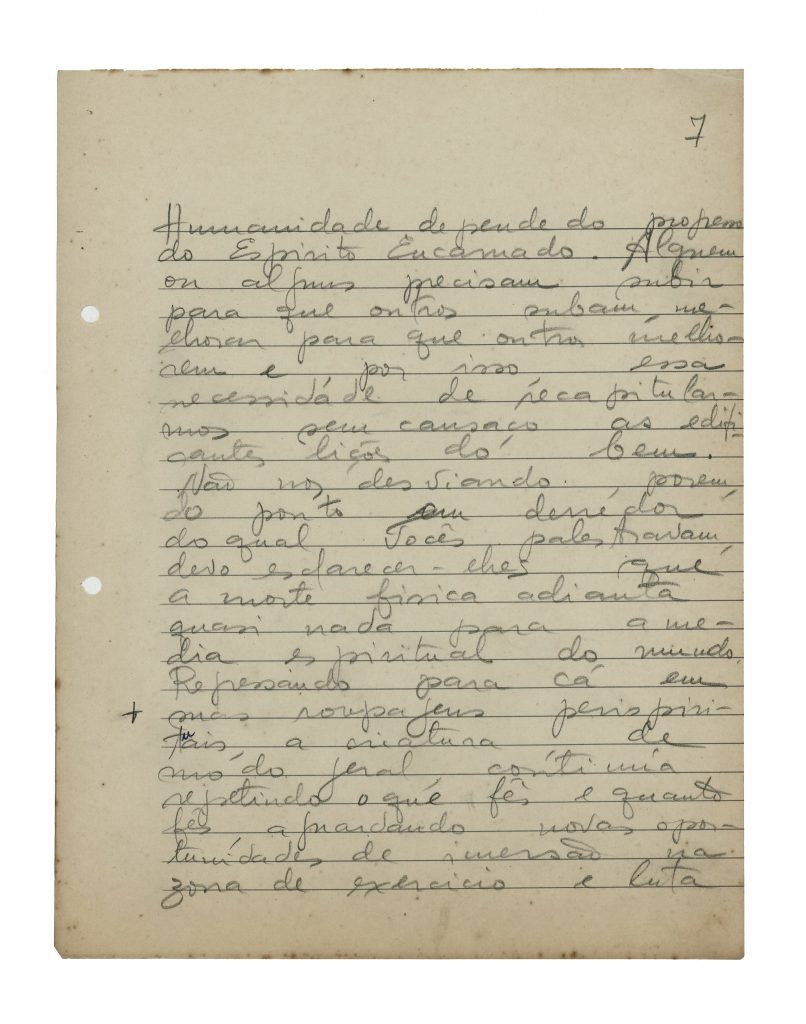 7
Humanidade depende do progresso
do Espirito Encarnado. Alguem
ou alguns precisam subir
para que outros subam, me-
lhorar para que outros melho-
rem e por isso essa
necessidade de recapitular-
mos sem cansaço as edifi-
cantes lições do bem.
Não nos desviando, porem,
do ponto em derredor
do qual Vocês palestravam,
devo esclarecer-lhes que
a morte fisica adianta
quasi nada para a me-
dia espiritual do mundo.
Regressando para cá em
+ suas roupagens perispiri-
tuais a criatura de
modo geral continua
repetindo o que fês e quanto
fês aguardando novas opor-
tunidades de imersão na
zona de exercicio e luta